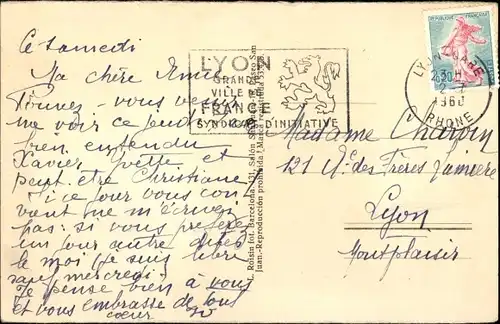 Ce samedi
Ma chère Amie
Pouvez-vous venir
me voir ce jeudi
bien entendu
Xavier Yvette et
peut être Christiane
si ce jour vous con
vient ne m'écrivez
pas: si vous préférez
un jour autre dites
le moi je suis libre
sauf mercredi
Je pense bien à vous
et vous embrasse de tout
coeur
LYON
GRANDE
VILLE
FRANCE
SYNDICAT D'INITIATIVE
REPUBLIQUE FRANÇAISE
LYON GARE
2-7
1960
RHONE
L. Roisin fot. Barcelona
Reproducción prohibida
Marca registrada
Madame Charpin
121 R. des Frères Lumière
Lyon
Montplaisir